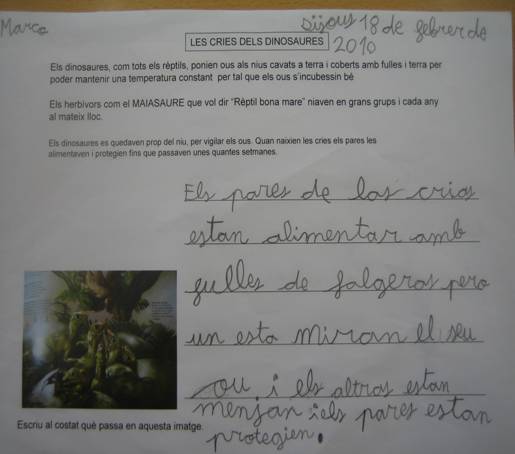 Marco
dijous 18 de febrer de
2010
LES CRIES DELS DINOSAURES
Els dinosaures, com tots els rèptils, ponien ous als nius cavats a terra i coberts amb fulles i terra per
poder mantenir una temperatura constant per tal que els ous s'incubessin bé
Els herbívors com el MAIASAURE que vol dir "Rèptil bona mare" niaven en grans grups i cada any
al mateix lloc.
Els dinosaures es quedaven prop del niu, per vigilar els ous. Quan naixien les cries els pares les
alimentaven i protegien fins que passaven unes quantes setmanes.
Els pares de las crias
estan alimentar amb
fulles de falgeras pero
un esta miran el seu
ou i els altras estan
menjan i els pares estan
protegien.
Escriu al costat què passa en aquesta imatge.